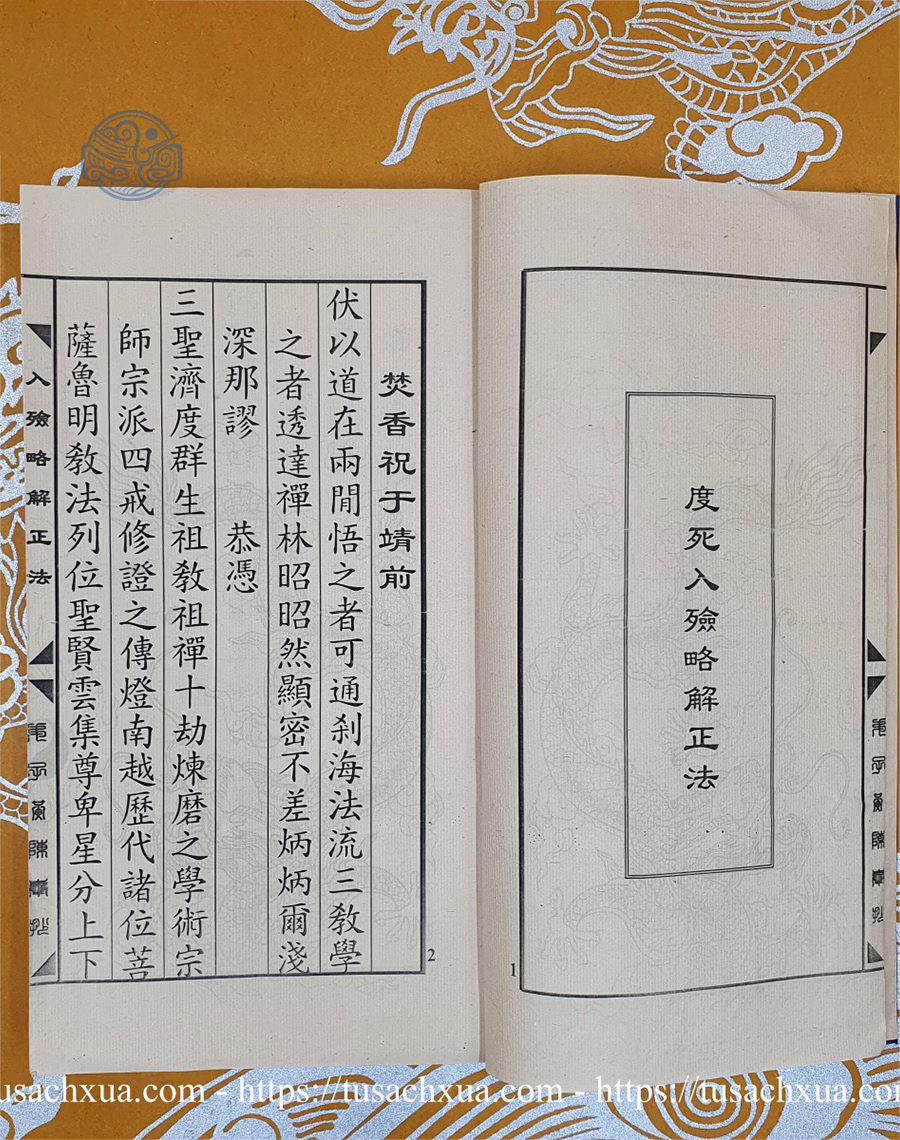 度死入殮略解正法
1
焚香祝于靖前
伏以道在兩間悟之者可通刹海法流三教學
之者透達禪林昭昭然顯密不差炳炳爾淺
深那謬 恭憑
三聖濟度群生祖教祖禪十劫煉磨之學術宗
師宗派四戒修證之傳燈南越歷代諸位菩
薩魯明教法列位聖賢雲集尊卑星分上下
2
入殮略解正法
tusachxua.com - https://tusachxua.com - https://tusachxua.com